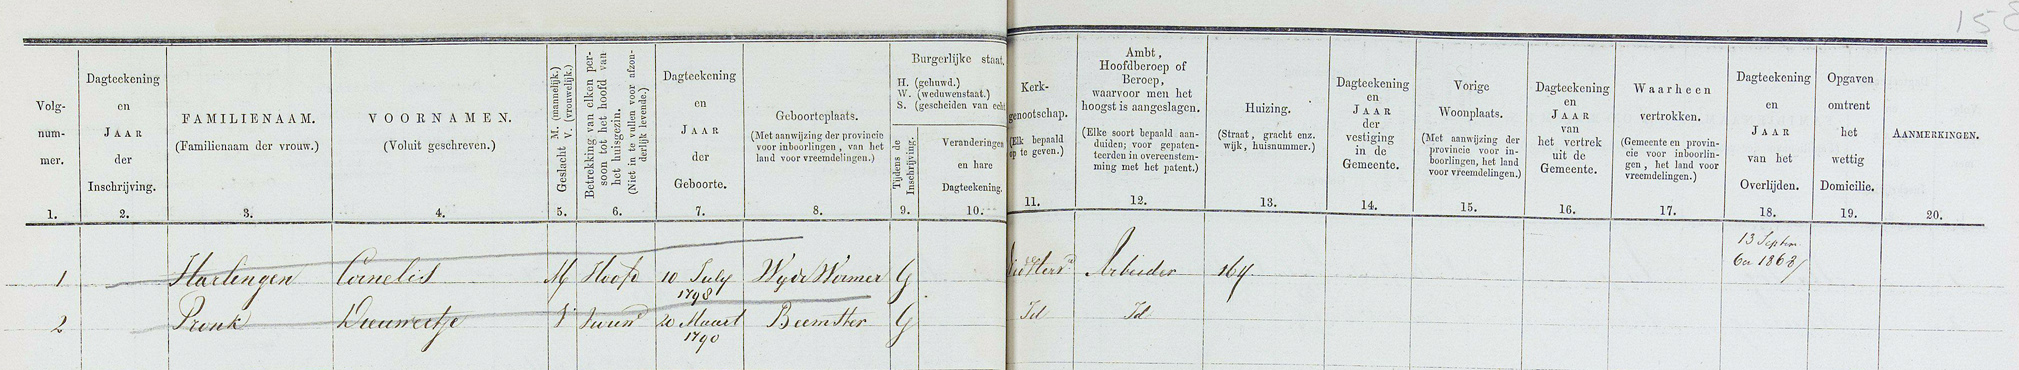 158
Volg-
num-
mer.
1.
Dagteekening
en
JAAR
der
Inschrijving.
2.
FAMILIENAAM.
(Familienaam der vrouw.)
3.
VOORNAMEN.
(Voluit geschreven.)
4.
Geslacht M. (mannelijk.)
V. (vrouwelijk.)
5.
Betrekking van elken per-
soon tot het hoofd van
het huisgezin.
(Niet in te vullen voor afzon-
derlijk levende.)
6.
Dagteekening
en
JAAR
der
Geboorte.
7.
Geboorteplaats.
(Met aanwijzing der provincie
voor inboorlingen, van het
land voor vreemdelingen.)
8.
Burgerlijke staat.
H. (gehuwd.)
W. (weduwenstaat.)
S. (gescheiden van echt
Tijdens de
Inschrijving.
9.
Veranderingen
en hare
Dagteekening.
10.
Kerk-
genootschap.
(Elk bepaald
op te geven.)
11.
Ambt,
Hoofdberoep of
Beroep,
waarvoor men het
hoogst is aangeslagen.
(Elke soort bepaald aan-
duiden; voor gepaten-
teerden in overeenstem-
ming met het patent.)
12.
Huizing.
(Straat, gracht enz.
wijk, huisnummer.)
13.
Dagteekening
en
JAAR
der
vestiging
in de
Gemeente.
14.
Vorige
Woonplaats.
(Met aanwijzing der
provincie voor in-
boorlingen, het land
voor vreemdelingen.)
15.
Dagteekening
en
JAAR
van
het vertrek
uit de
Gemeente.
16.
Waarheen
vertrokken.
(Gemeente en provin-
cie voor inboorlin-
gen, het land voor
vreemdelingen.)
17.
Dagteekening
en
JAAR
van het
Overlijden.
18.
Opgaven
omtrent
het
wettig
Domicilie.
19.
AANMERKINGEN.
20.
1 Harlingen Cornelis M Hoofd 10 July 1798 Wyde Wormer G Arbeider 164 13 Septem 1868
2 Pronk Dieuwertje V 20 Maart 1790 Beemster G Id Id